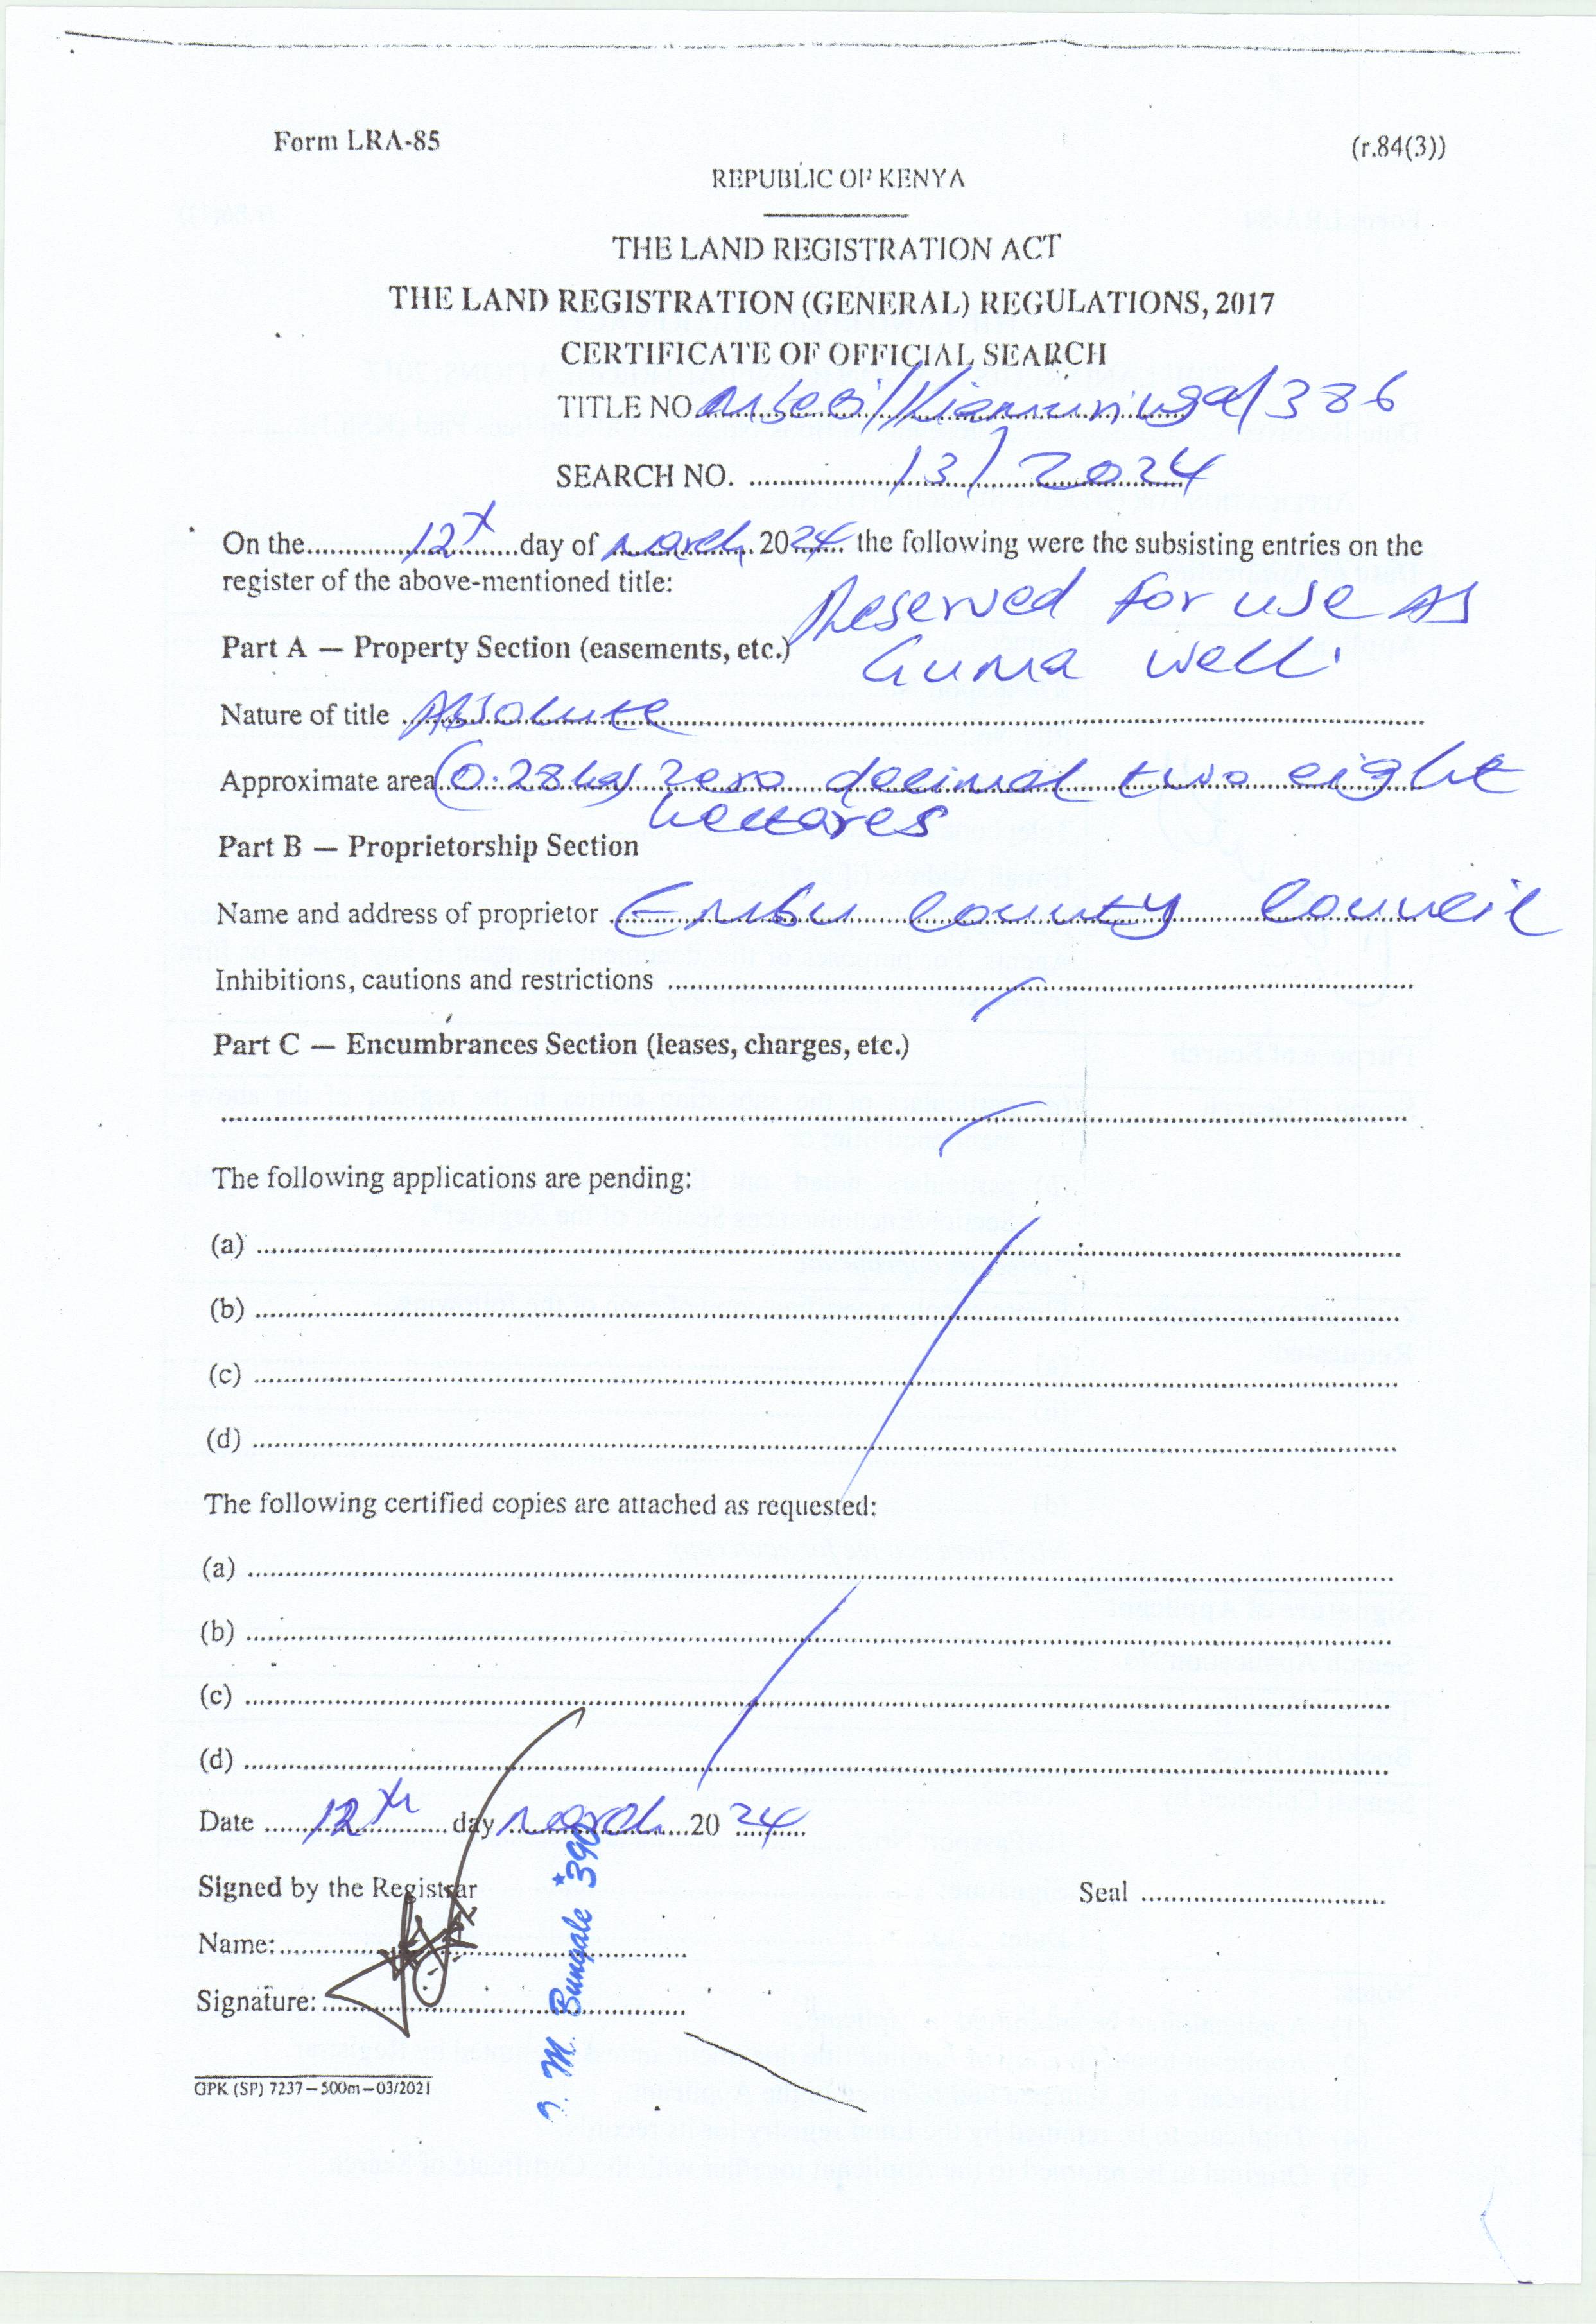 Form LRA-85 (r.84(3))
REPUBLIC OF KENYA
THE LAND REGISTRATION ACT
THE LAND REGISTRATION (GENERAL) REGULATIONS, 2017
CERTIFICATE OF OFFICIAL SEARCH
TITLE NO Mbeei/Kiamuringa/386
SEARCH NO. 13/2024
On the 12th day of March 2024 the following were the subsisting entries on the
register of the above-mentioned title:
Reserved for use as
Part A — Property Section (easements, etc.) Guma well.
Nature of title Absolute
Approximate area (0.28ha) zero decimal two eight
hectares
Part B — Proprietorship Section
Name and address of proprietor Embu County Council
Inhibitions, cautions and restrictions
Part C — Encumbrances Section (leases, charges, etc.)
The following applications are pending:
(a)
(b)
(c)
(d)
The following certified copies are attached as requested:
(a)
(b)
(c)
(d)
Date 12th day March 2024
Signed by the Registrar Seal
Name:
Signature:
M. Bungale *390
GPK (SP) 7237—500m—03/2021